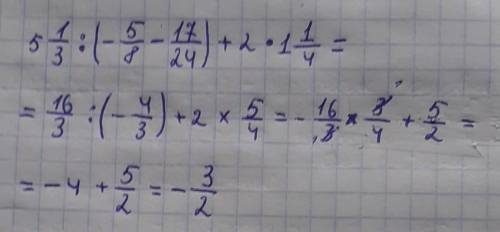 5 1/3 : (- 5/8 - 17/24) + 2 · 1 1/4 =
= 16/3 : (- 4/3) + 2 × 5/4 = - 16/3 × 3/4 + 5/2 =
= -4 + 5/2 = - 3/2